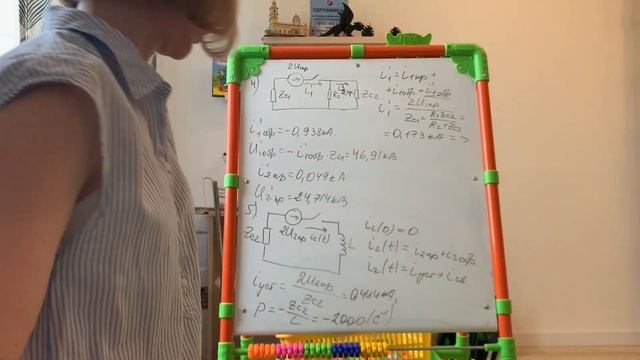 СЕРТИФИКА
4)
2Uпр
Zc1
i1
R2
Zc2
i1 = i1пр +
+ i1обр + i1обр
i1 = 2Uпр / (Zc1 + R2Zc2 / (R2 + Zc2)) =
= 0,173 кА =>
i1обр = -0,938 кА
U1обр = -i1обр · Zc1 = 46,91 кВ
i2пр = 0,049 кА
U2пр = 24,714 кВ
5)
Zc2
2U2пр
i2(t)
L
i2(0) = 0
i2(t) = i2пр + i2обр
i2(t) = iуст + iсв
iуст = 2U2пр / Zc2 =
P = -Zc2 / L = -2000 (c⁻¹)